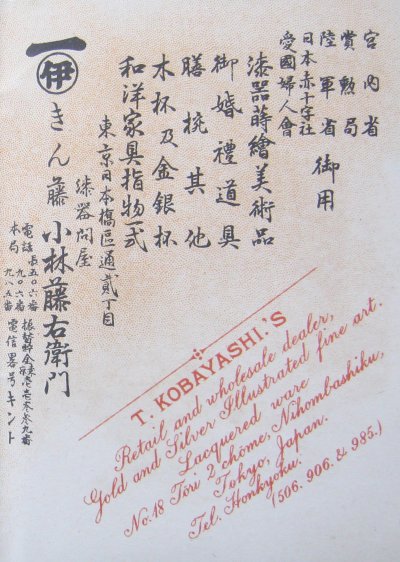 宮内省
賞勲局
陸軍省
日本赤十字社
愛國婦人會
御用
漆器蒔繪美術品
御婚禮道具
膳椀其他
木杯及金銀杯
和洋家具指物一式
東京日本橋區通貳丁目
漆器問屋
一
伊
きん藤 小林藤右衛門
電話
本局
五〇六番
九〇六番
九八五番
電信畧号キント
T. KOBAYASHI.'S
Retail and wholesale dealer,
Gold and Silver Illustrated fine art.
Lacquered ware
No.18 Tōri 2 chōme, Nihombashiku,
Tokyo, Japan.
Tel. Honkyoku.
(506. 906. & 985.)